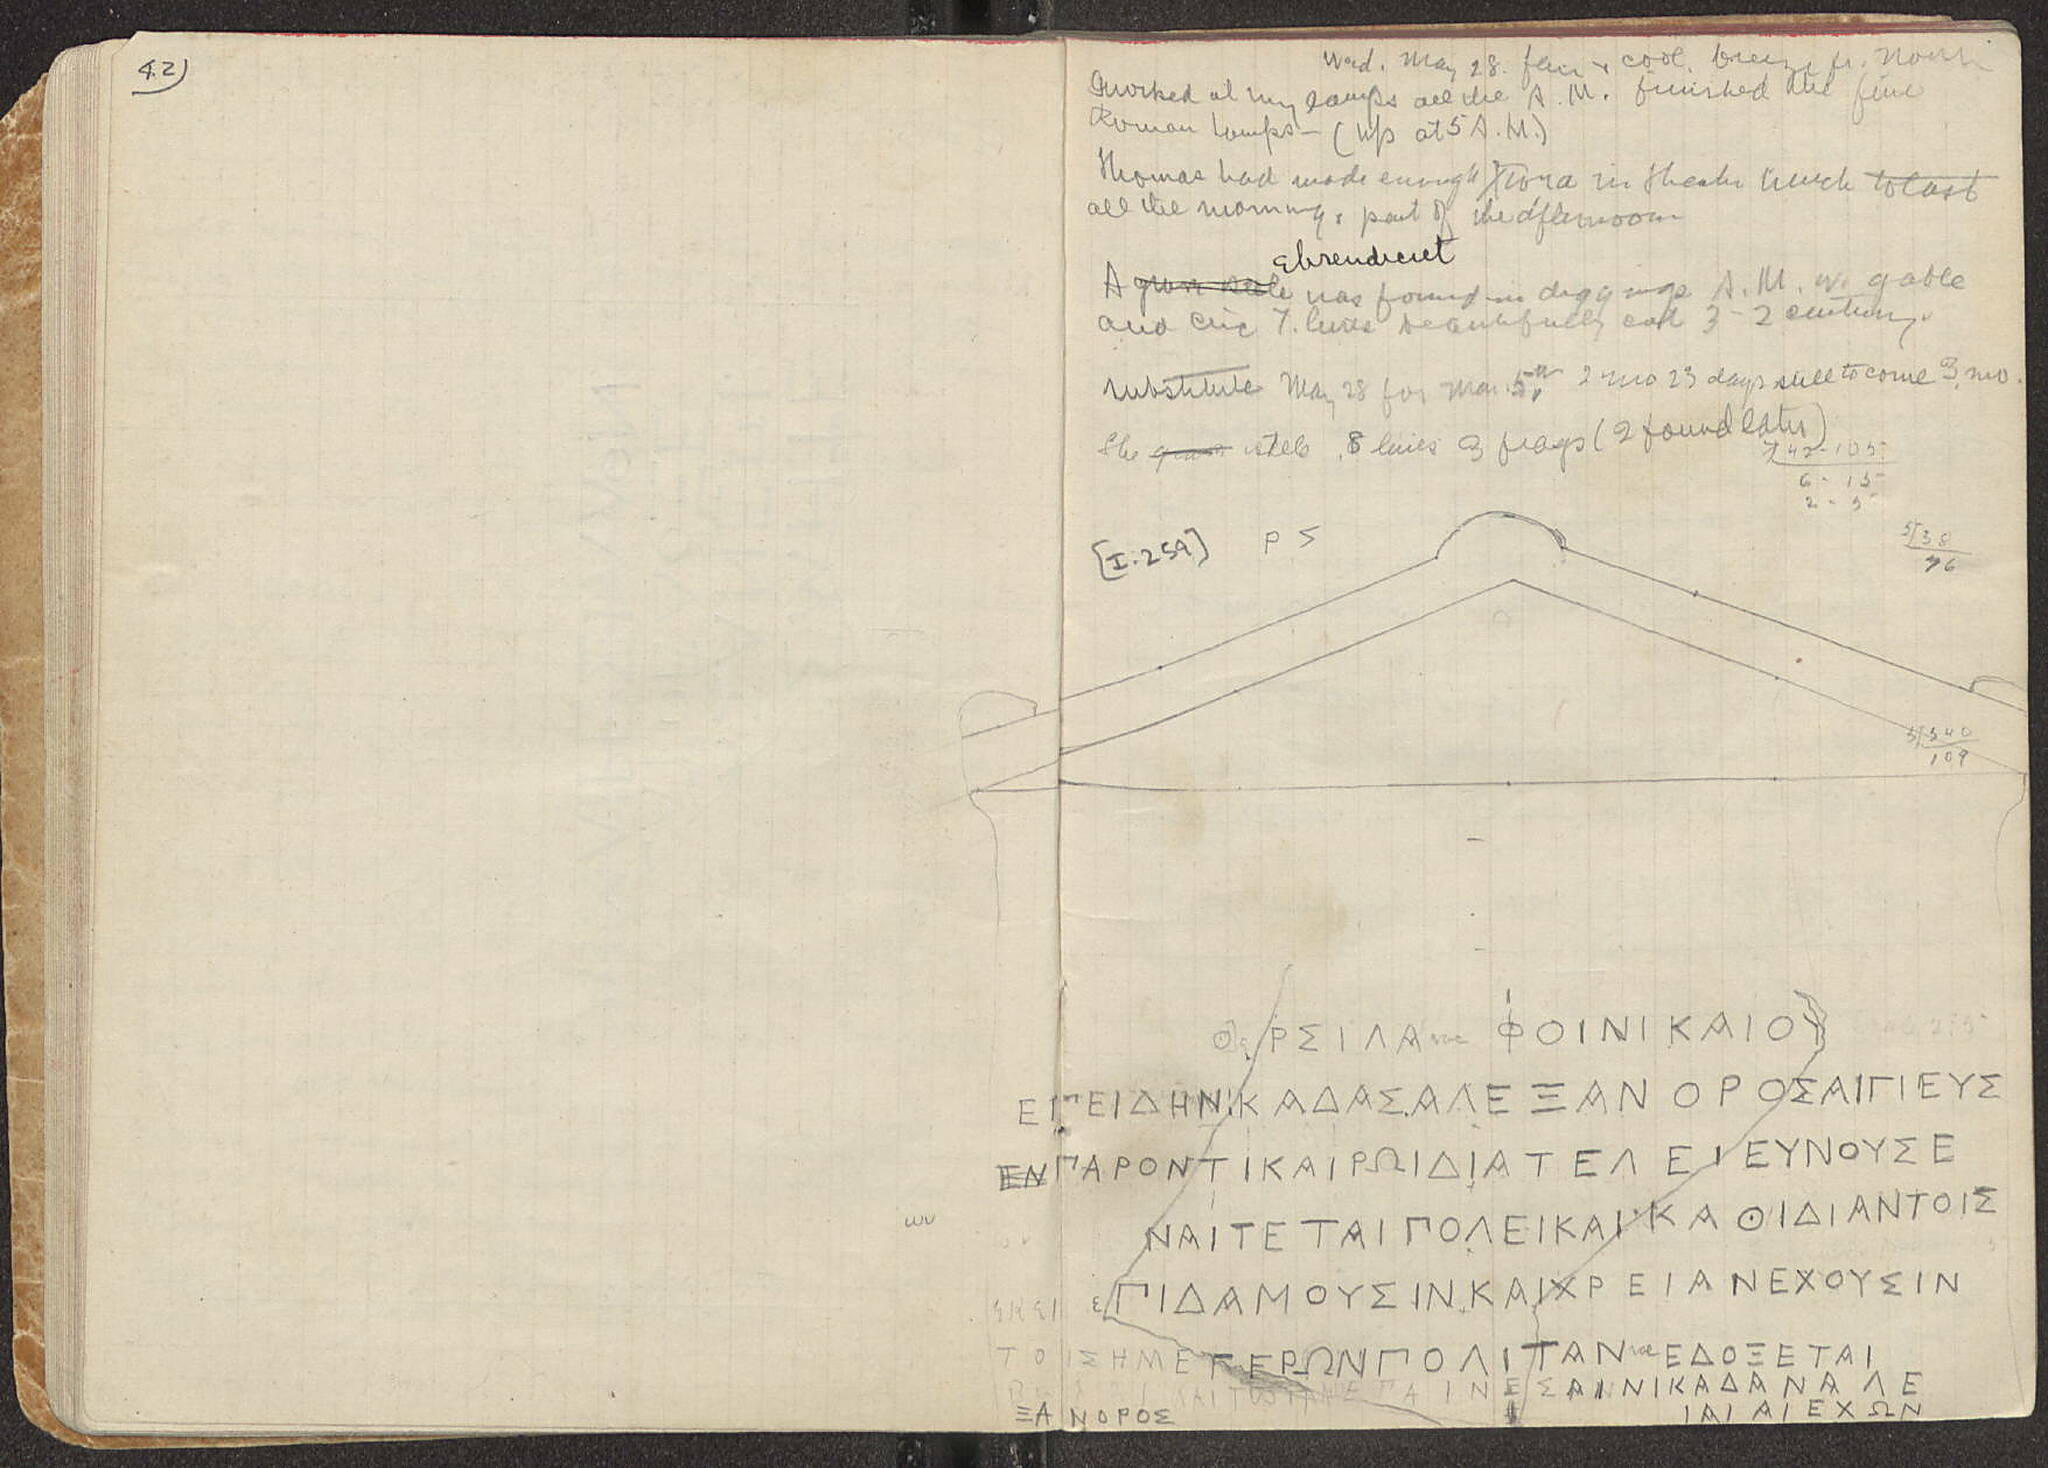 42)
Wed. May 28. fair & cool. breeze fr. North
I worked at my lamps all the A.M. finished the fine
Roman lamps – (Up at 5 A.M.)
Thomas had made enough in theater to last
all the morning & part of the afternoon
Ehrendecret
A was found in diggings A.M. w. gable
and circ 7. lines beautifully cut 3–2 century.
substitute May 28 for Mar. 5th 2 mo 23 days still to come 3 mo.
The stele 8 lines 3 frags (2 found later)
7/42-105
6 - 15
[I.259] P Σ
5/38
76
5/540
109
ΡΣΙΛΑ ΦΟΙΝΙΚΑΙΟΥ
ΕΠΕΙΔΗΝΙΚΑΔΑΣΑΛΕΞΑΝΟΡΟΣΑΙΓΙΕΥΣ
ΕΝ ΠΑΡΟΝΤΙΚΑΙΡΩΙΔΙΑΤΕΛΕΙΕΥΝΟΥΣΕ
ων
ΝΑΙΤΕΤΑΙΠΟΛΕΙΚΑΙΚΑΘΙΔΙΑΝΤΟΙΣ
εΠΙΔΑΜΟΥΣΙΝΚΑΙΧΡΕΙΑΝΕΧΟΥΣΙΝ
ΤΟΙΣΗΜΕΤΕΡΩΝΠΟΛΙΤΑΝ vac ΕΔΟΞΕΤΑΙ
ΑΙΝΙΚΑΔΑΝΑΛΕ
ΞΑΝΟΡΟΣ ΙΑΙΑΙΕΧΩΝ